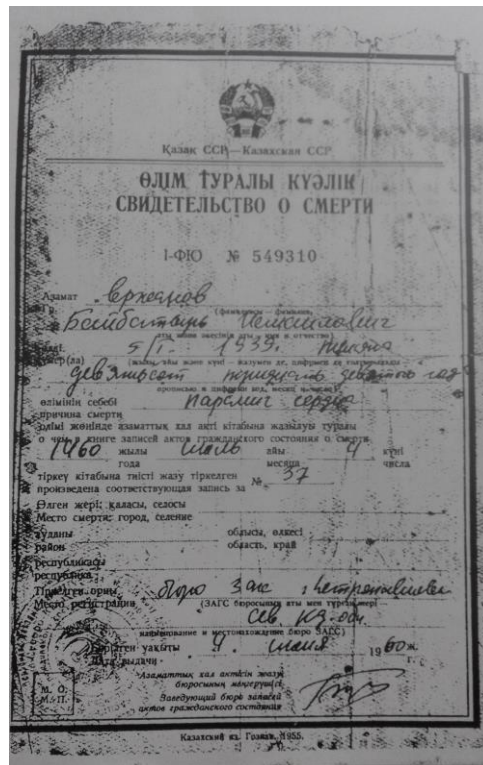 Қазақ ССР — Казахская ССР
ӨЛІМ ТУРАЛЫ КУӘЛІК
СВИДЕТЕЛЬСТВО О СМЕРТИ
I-ФЮ № 549310
Азамат
Гр.
(фамилиясы — фамилия,
аты және әкесінің аты — имя и отчество)
5/I - 1939.
девятьсот тридцать девятого год
прописью и цифрами год, месяц и число)
өлімінің себебі
причина смерти
паралич сердца
өлімі жөнінде азаматтық хал акті кітабына жазылуы туралы
о чем в книге записей актов гражданского состояния о смерти
1960 жылы июль айы 4 күні
года месяца числа
тіркеу кітабына тиісті жазу тіркелген
произведена соответствующая запись за № 37
Өлген жері: қаласы, селосы
Место смерти: город, селение
ауданы облысы, өлкесі
район область, край
республикасы
республика
Тіркелген орны бюро Загс
Место регистрации
(ЗАГС бюросының аты мен тұрған жері
наименование и местонахождение бюро ЗАГС)
Берілген уақыты 4. июля 1960 ж.
Дата выдачи г.
Азаматтық хал актісін жазу
бюросының меңгерушісі
М. О.
М. П.
Заведующий бюро записей
актов гражданского состояния
1955.